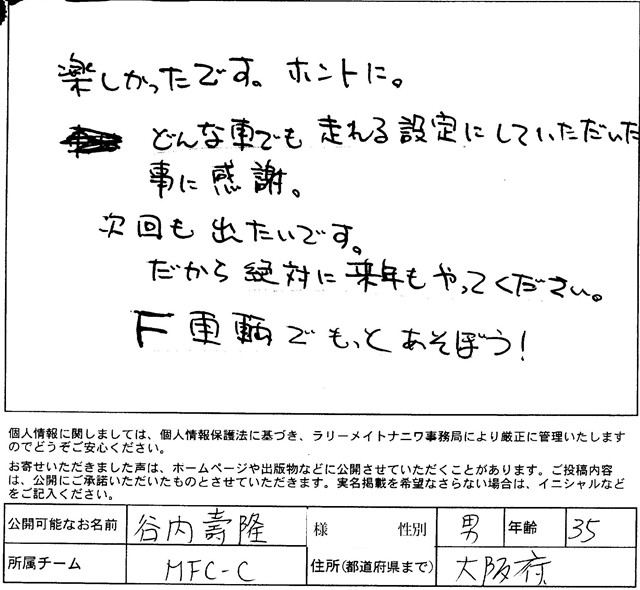 楽しかったです。ホントに。
どんな車でも走れる設定にしていただいた
事に感謝。
次回も出たいです。
だから絶対に来年もやってください。
F車輌でもっとあそぼう!
個人情報に関しましては、個人情報保護法に基づき、ラリーメイトナニワ事務局により厳正に管理いたします
のでどうぞご安心ください。
お寄せいただきました声は、ホームページや出版物などに公開させていただくことがあります。ご投稿内容
は、公開にご承諾いただいたものとさせていただきます。実名掲載を希望なさらない場合は、イニシャルなど
をご記入ください。
公開可能なお名前 谷内壽隆 様 性別 男 年齢 35
所属チーム MFC-C 住所(都道府県まで) 大阪府